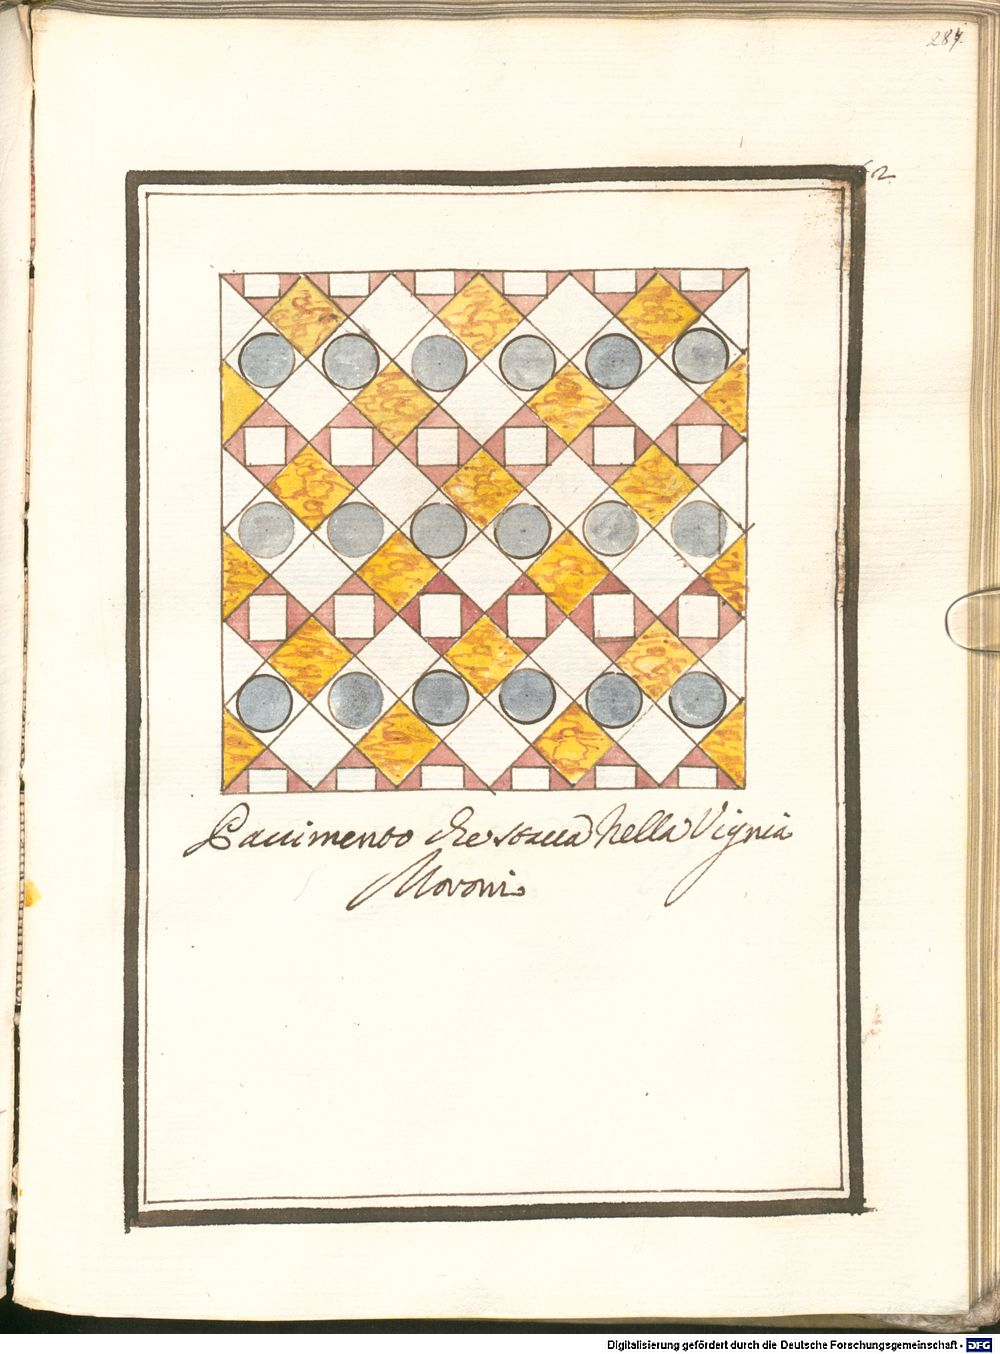 287.
62
Pauimento che staua Nella Vignia
Moroni
Digitalisierung gefördert durch die Deutsche Forschungsgemeinschaft - DFG